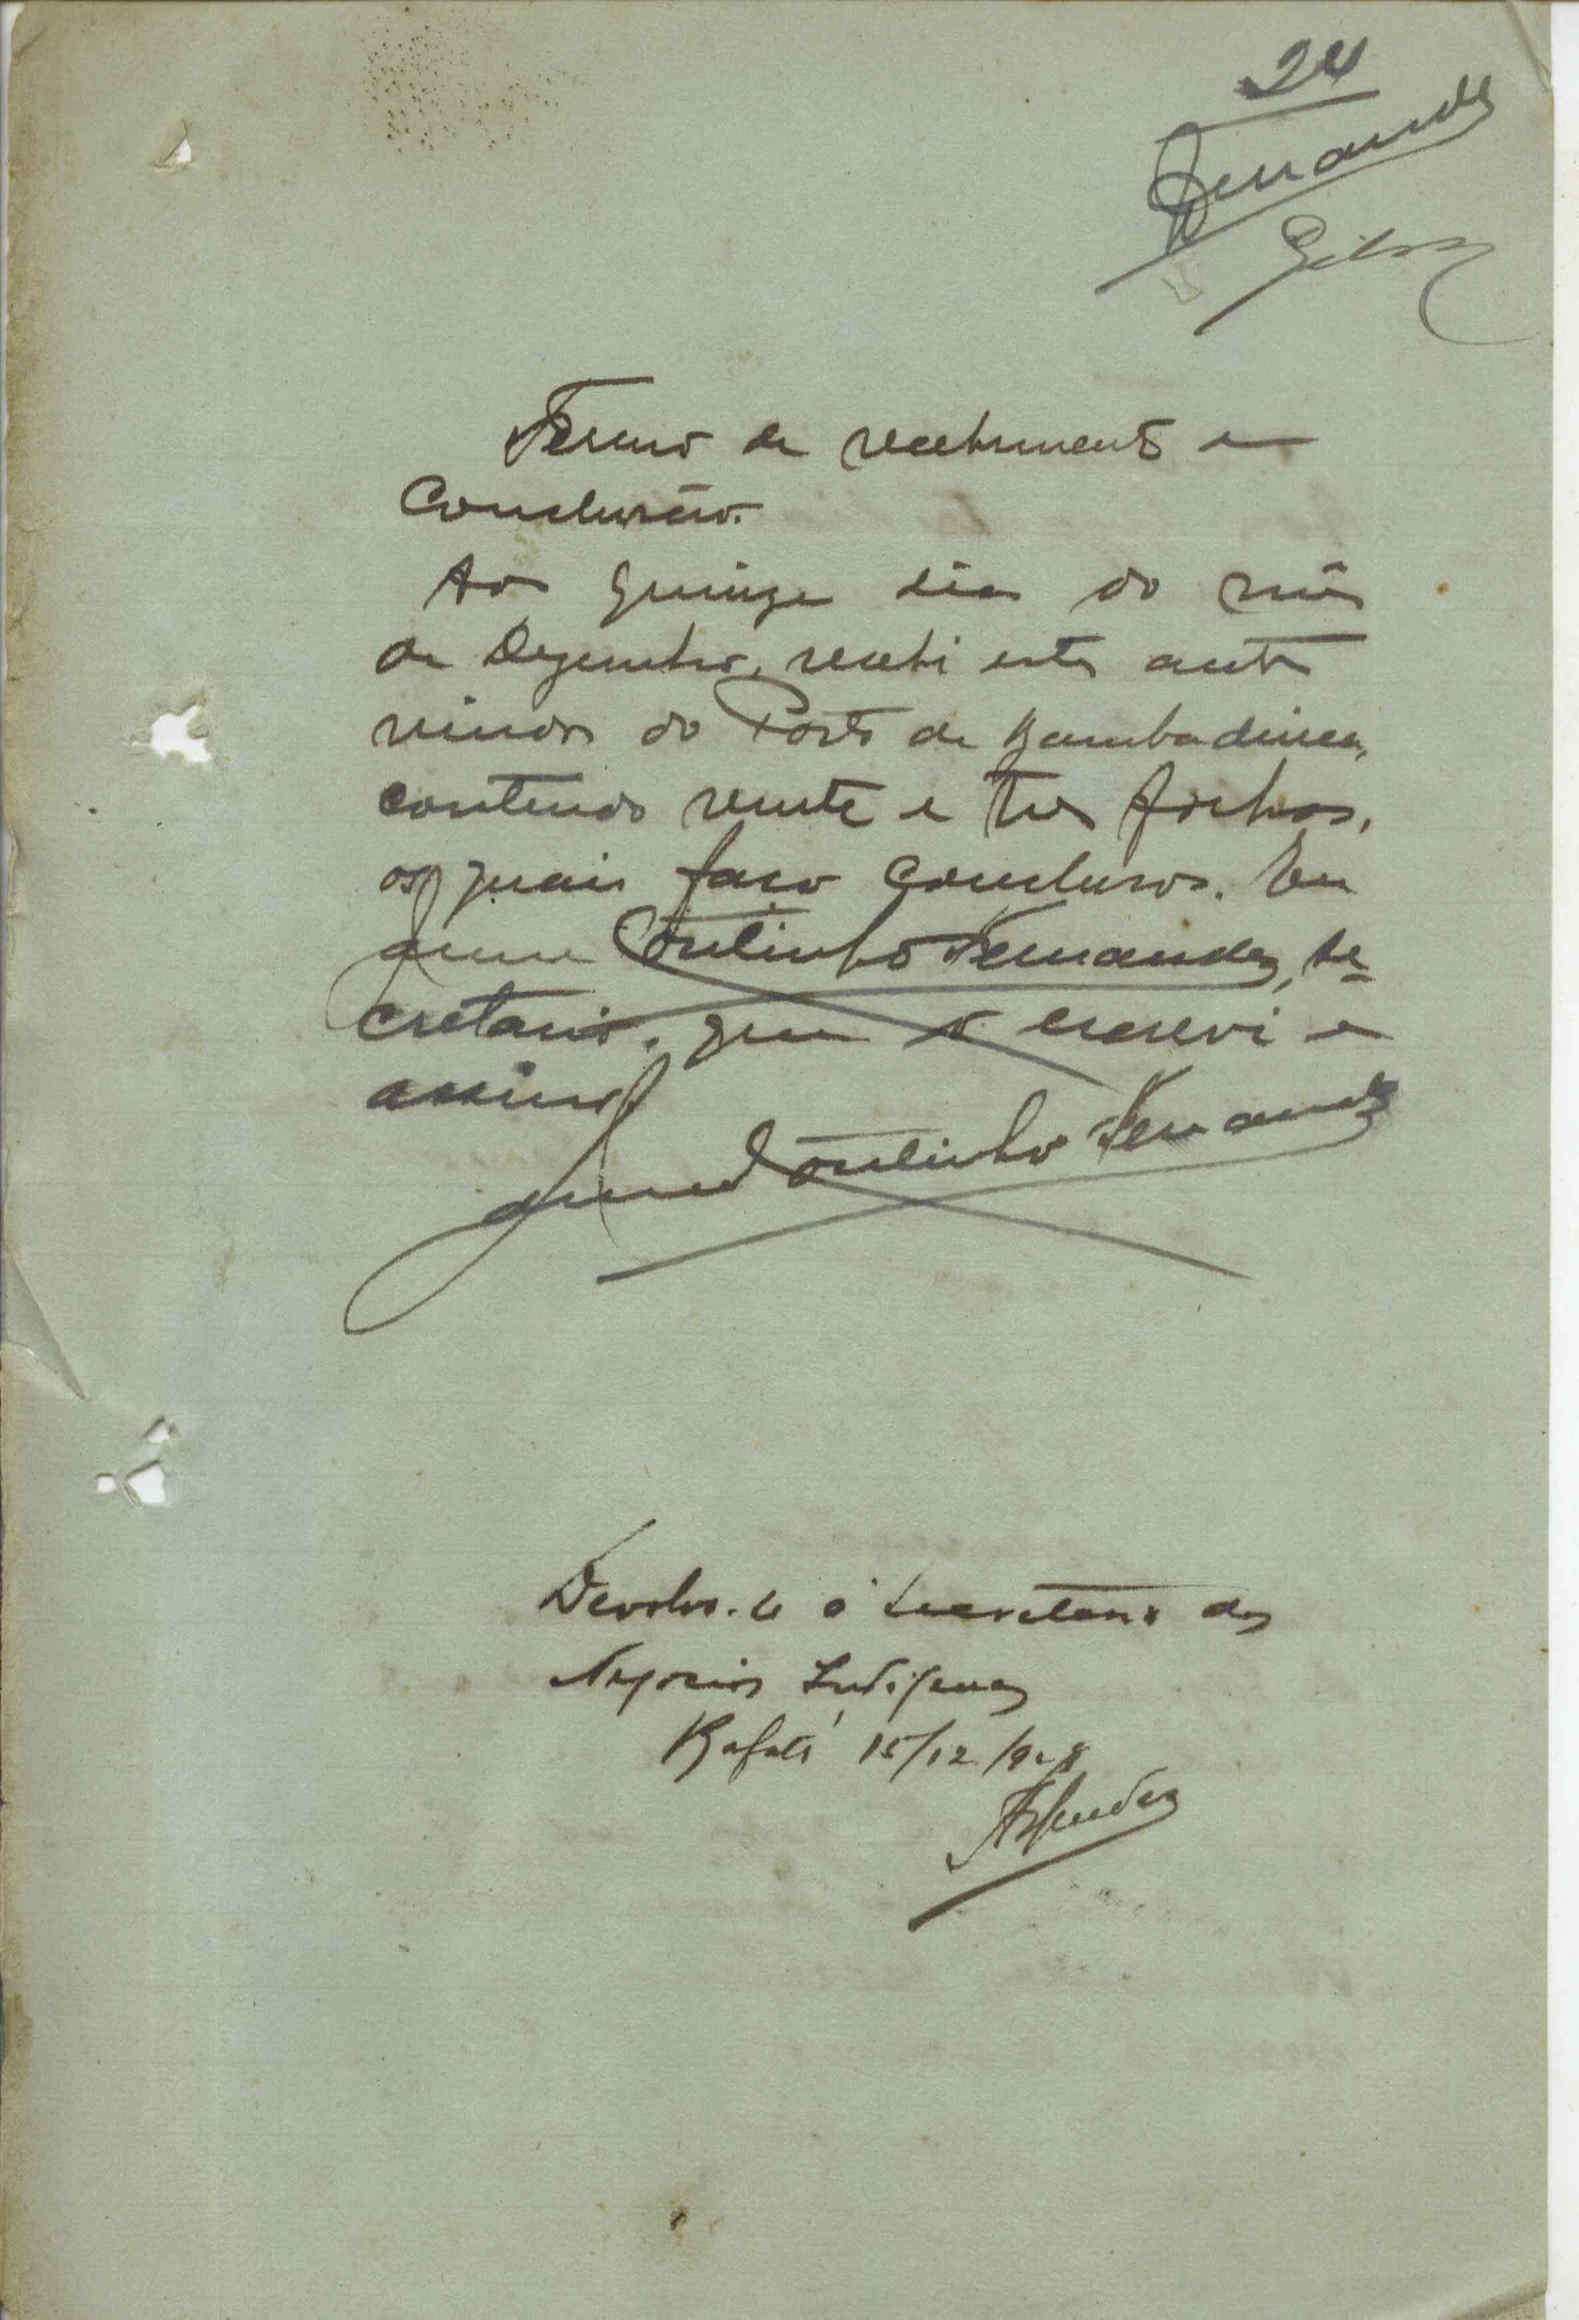 24
Fernandes
Termo de recebimento e
Conclusão.
Aos quinze dias do mês
de Dezembro, recebi estes autos
vindos do Posto de Bambadinca,
contendo vinte e tres folhas,
os quais faço conclusos. Eu
Coutinho Fernandes, se-
cretario, que o escrevi e
assino
Coutinho Fernandes
Devolva-se á Secretaria dos
Negocios Indigenas
Bafatá 15/12/928